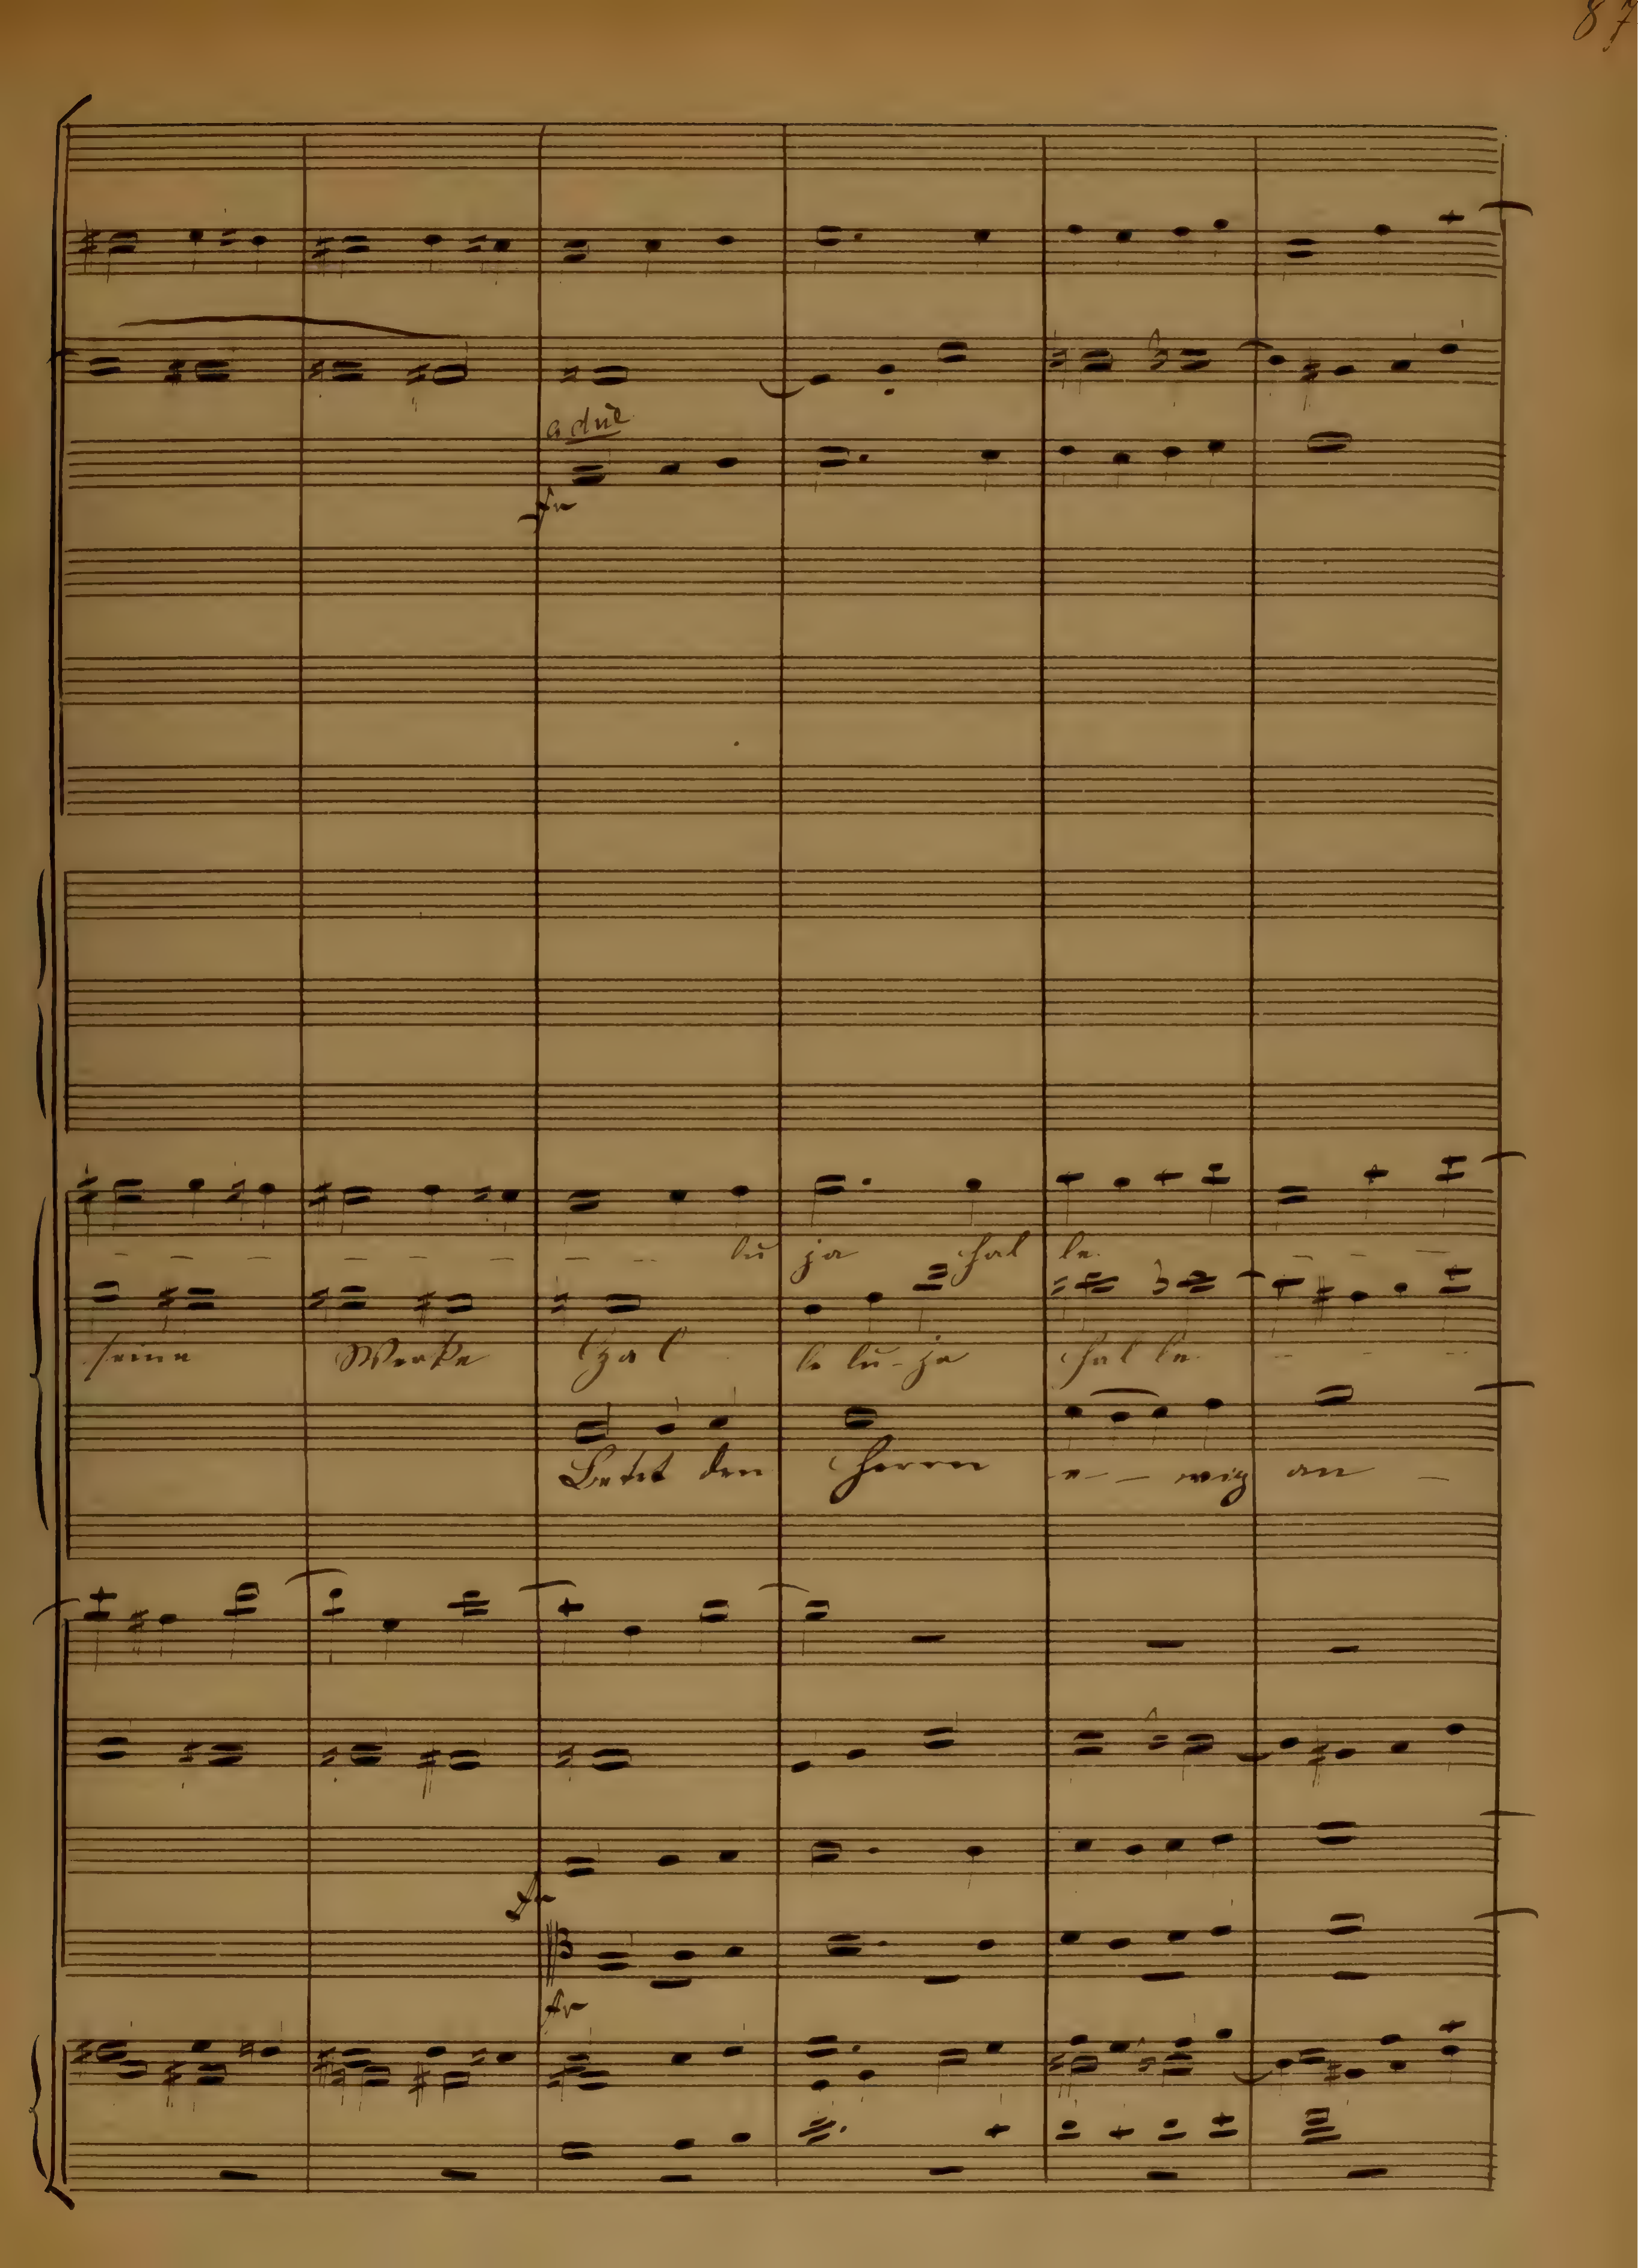 87
a due
lu ja hal le
seine Werke Hal le lu-ja hal le
Betet den Herrn e - - wig an -